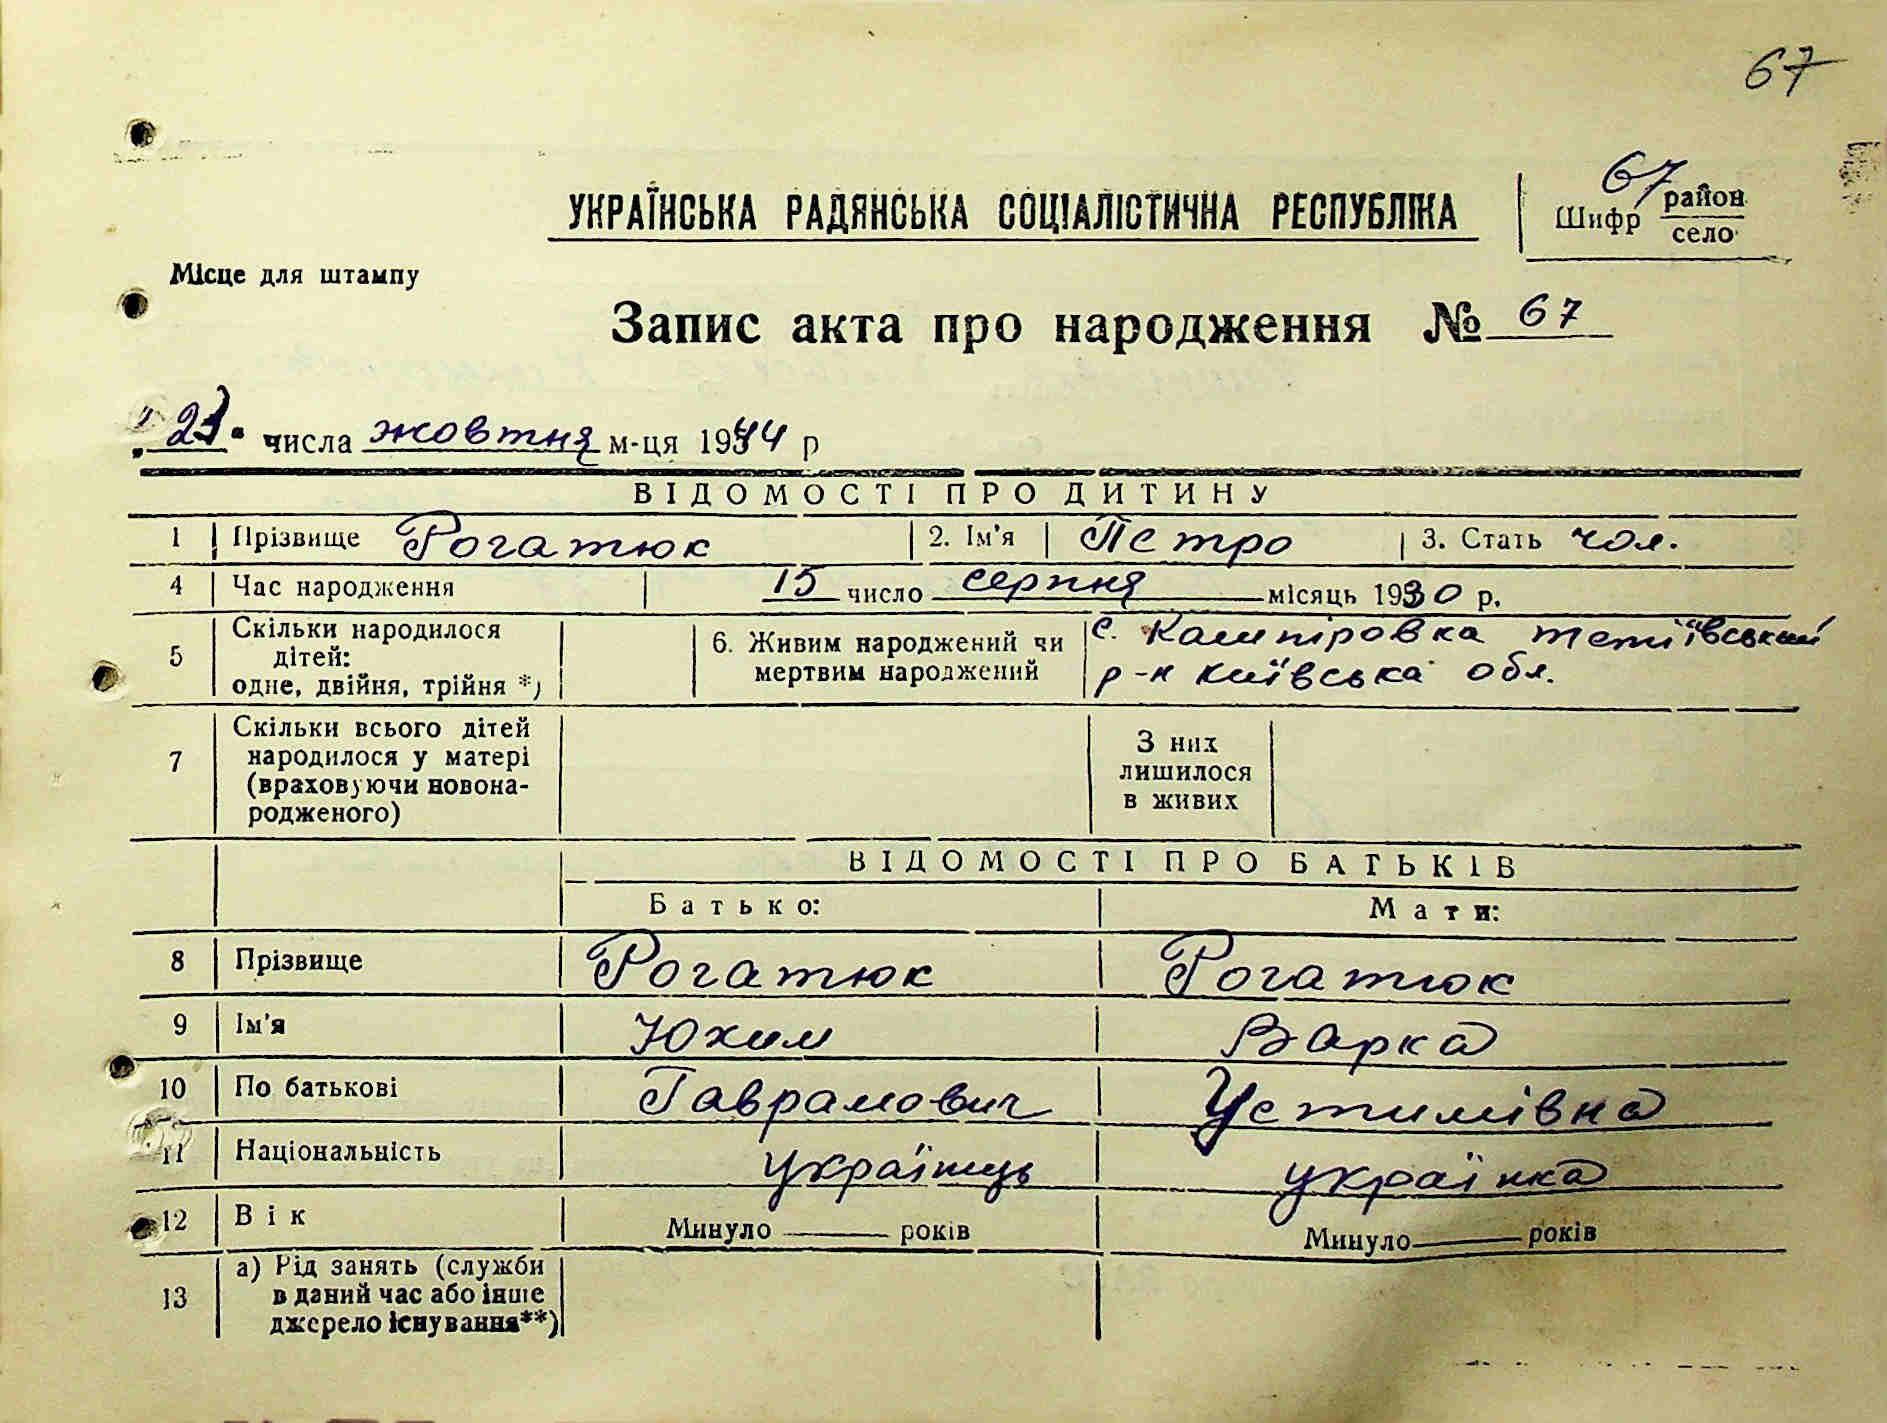 67
УКРАЇНСЬКА РАДЯНСЬКА СОЦІАЛІСТИЧНА РЕСПУБЛІКА
67
Шифр район
село
Місце для штампу
Запис акта про народження № 67
числа жовтня м-ця 1944 р
ВІДОМОСТІ ПРО ДИТИНУ
1 Прізвище Рогатюк 2. Ім'я Петро 3. Стать чол.
4 Час народження 15 число серпня місяць 1930 р.
5 Скільки народилося дітей: одне, двійня, трійня *) 6. Живим народжений чи мертвим народжений с. Кашпіровка тетіївський
р-н київська обл.
7 Скільки всього дітей народилося у матері (враховуючи новонародженого) З них лишилося в живих
ВІДОМОСТІ ПРО БАТЬКІВ
Батько: Мати:
8 Прізвище Рогатюк Рогатюк
9 Ім'я Юхим Варка
10 По батькові Гаврамович Устимівна
11 Національність українць українка
12 Вік Минуло років Минуло років
13 а) Рід занять (служби в даний час або інше джерело існування**)